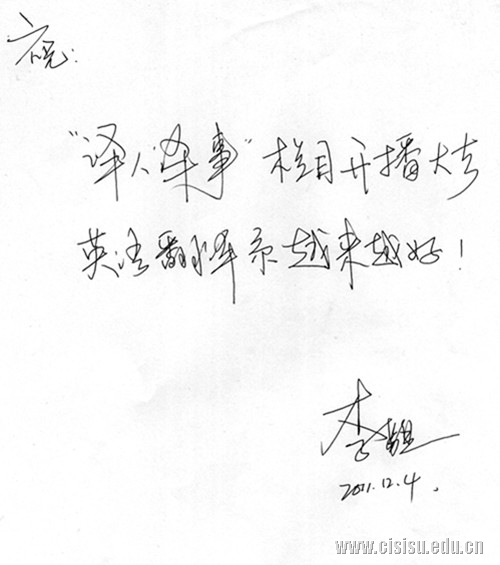 "译人译事"栏目开播大吉
英语翻译系越来越好!
李
2011.12.4.
www.cisisu.edu.cn